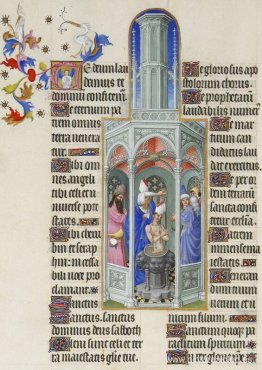 Te deum lau
demus te
dominum confitem.
Te eternum pa
trem omnis
terra venera
tur.
Tibi om
nes angeli
tibi celi et
universe pote
states.
Tibi cheru
bin et seraph
im: incessa
bili voce pro
clamant.
Sanctus
Sanctus. sanctus
dominus deus sabaoth
Pleni sunt celi et ter
ra maiestatis glie tue.
Te gloriosus apo
stolorum chorus.
Te prophetarum
laudabilis numer
Te mar
tirum can
didatus lau
dat exercitus.
Te per or
bem terrarum
sancta confi
tetur ecclesia.
Patrem
immense ma
iestatis.
Veneran
dum tuum ve
rum et u
nicum filium.
Sanctum quoque pa
raclitum spiritum
Tu rex glorie xpe.